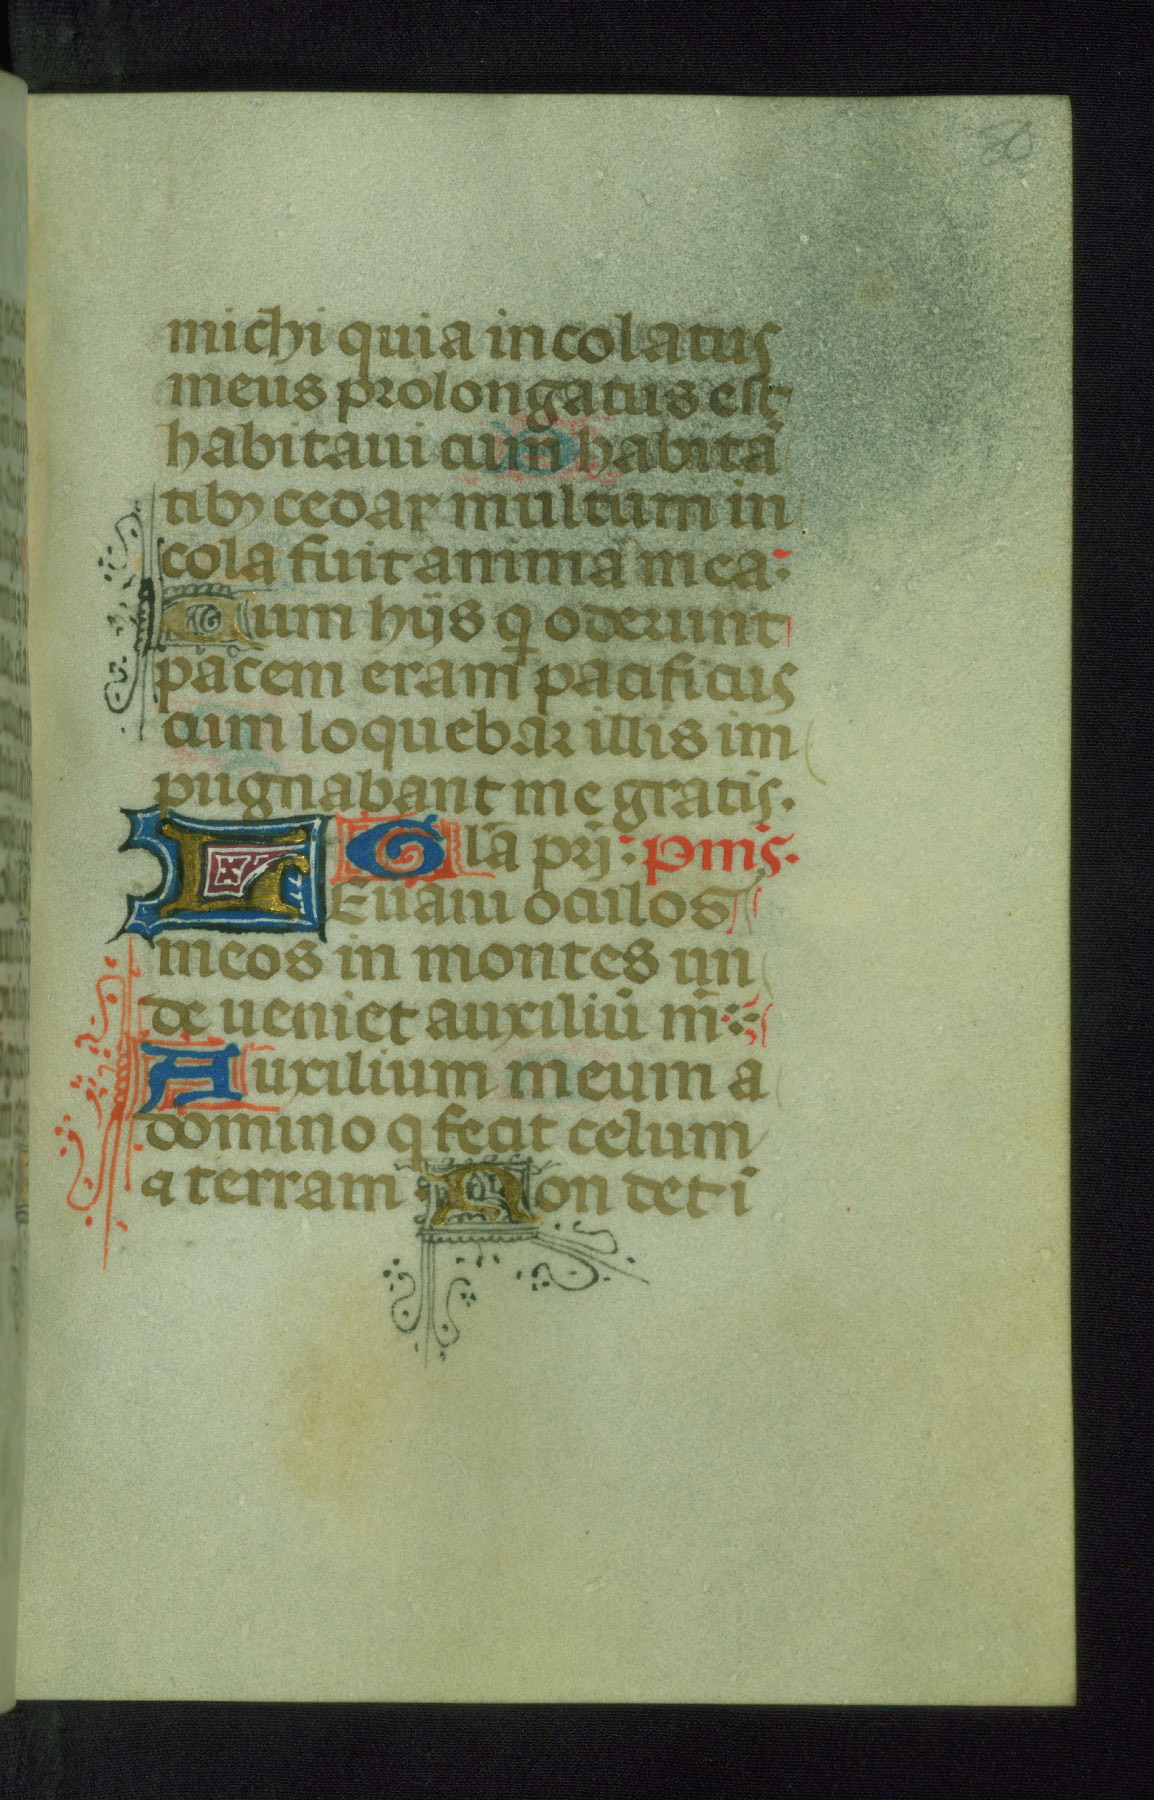 80
michi quia incolatus
meus prolongatus est
habitaui cum habitā
tibꝫ cedar multum in
cola fuit anima mea:
Cum hijs q̄ oderunt
pacem eram pacificus
cum loquebar illis im
pugnabant me gratis.
Gla̅ pr̅i: pm̅s.
Leuaui oculos
meos in montes un
de ueniet auxiliū m̅
Auxilium meum a
domino q̄ fecit celum
⁊ terram: Non det ī